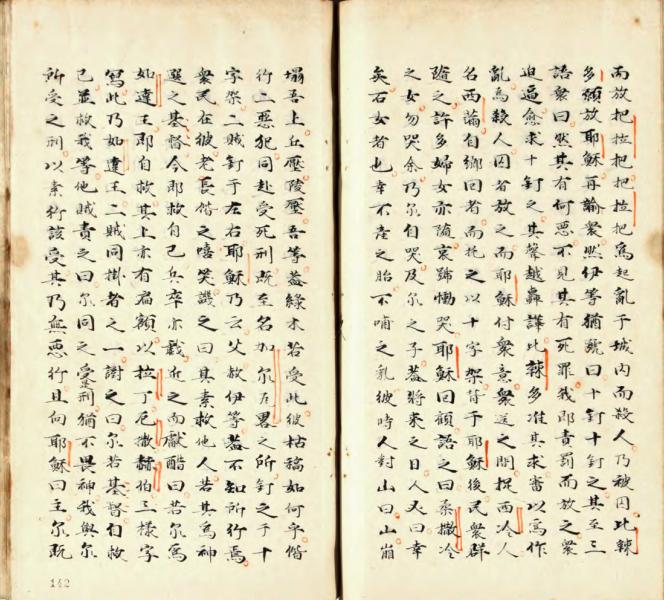 而放把拉把把拉把為起亂于城內而殺人乃被囚比辣
多須放耶穌再諭衆然伊等猶號曰十釘十釘之其至三
語衆曰然其有何惡不見其有死罪我即責罰而放之衆
迫逼愈求十釘之其聲越轟譁比辣多准其求審以為作
亂為殺人囚者放之而耶穌付衆意衆送之間捉西冷人
名西蕳自鄉回者而托之以十字架背于耶穌後民衆群
隨之許多婦女亦隨哀蹄慟哭耶穌回顧語之曰柔撒冷
之女勿哭余乃尔自哭及尔之子葢將來之日人必曰幸
矣石女者也幸不產之胎不哺之乳彼時人對山曰山崩
塌吾上丘壓陵壓吾等葢綠木若受此彼枯稿如何乎偕
行二惡犯同赴受死刑既至名加尔瓦畧之所釘之于十
字架二賊釘于左右耶穌乃云父赦伊等葢不知所行焉
衆民在彼老長偕之嘻笑譏之曰其素救他人若其為神
選之基督今即救自己兵卒亦戯近之而獻醋曰若尔為
如達王即自救其上亦有扁額以拉丁厄撒赫伯三樣字
寫此乃如達王二賊同掛者之一謝之曰尔若基督自救
己並救我等他賊責之曰尔同之受刑猶不畏神我與尔
所受之刑以素行該受其乃無惡行且向耶穌曰主尔既
142